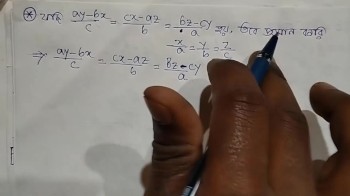 * যদি (ay-bx)/c = (cx-az)/b = (bz-cy)/a হয়, তবে প্রমাণ করি
x/a = y/b = z/c
⇒ (ay-bx)/c = (cx-az)/b = (bz-cy)/a